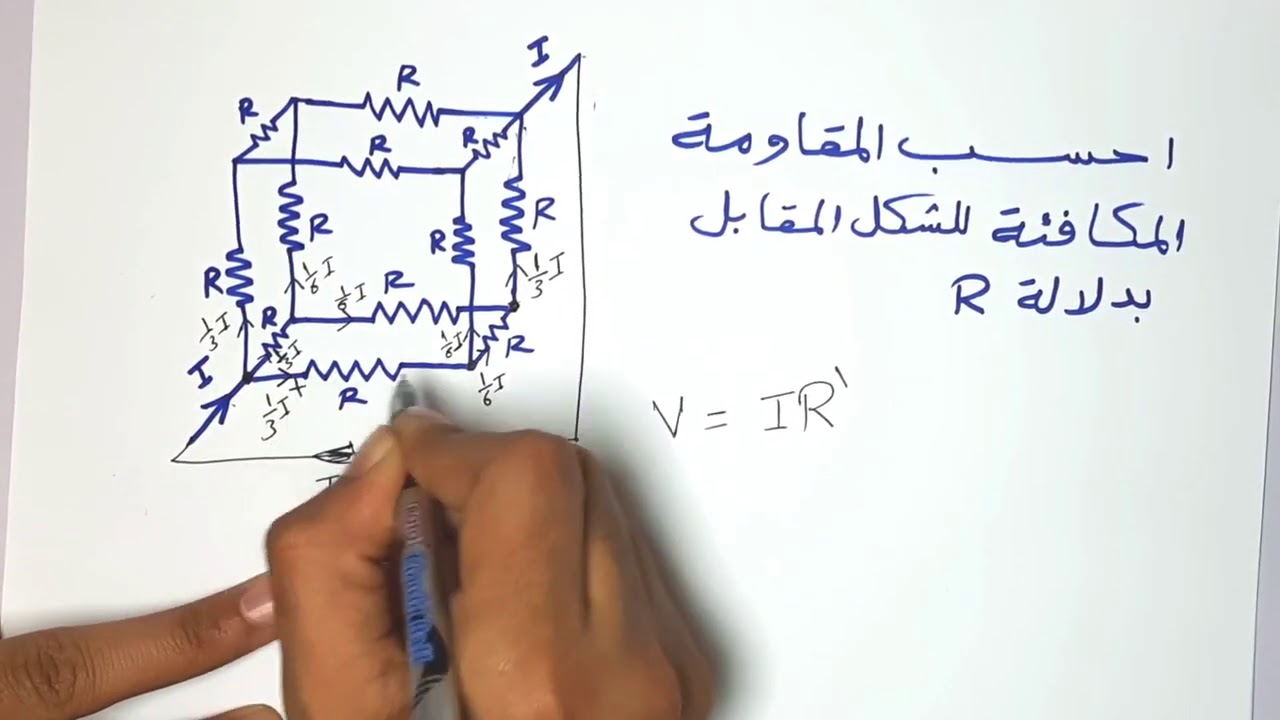 I
R
R
R
R
R
R
R
R
R
R
R
R
1/6 I
1/6 I
1/3 I
1/3 I
1/3 I
1/6 I
1/6 I
1/3 I
I
احسب المقاومة
المكافئة للشكل المقابل
بدلالة R
V = IR'